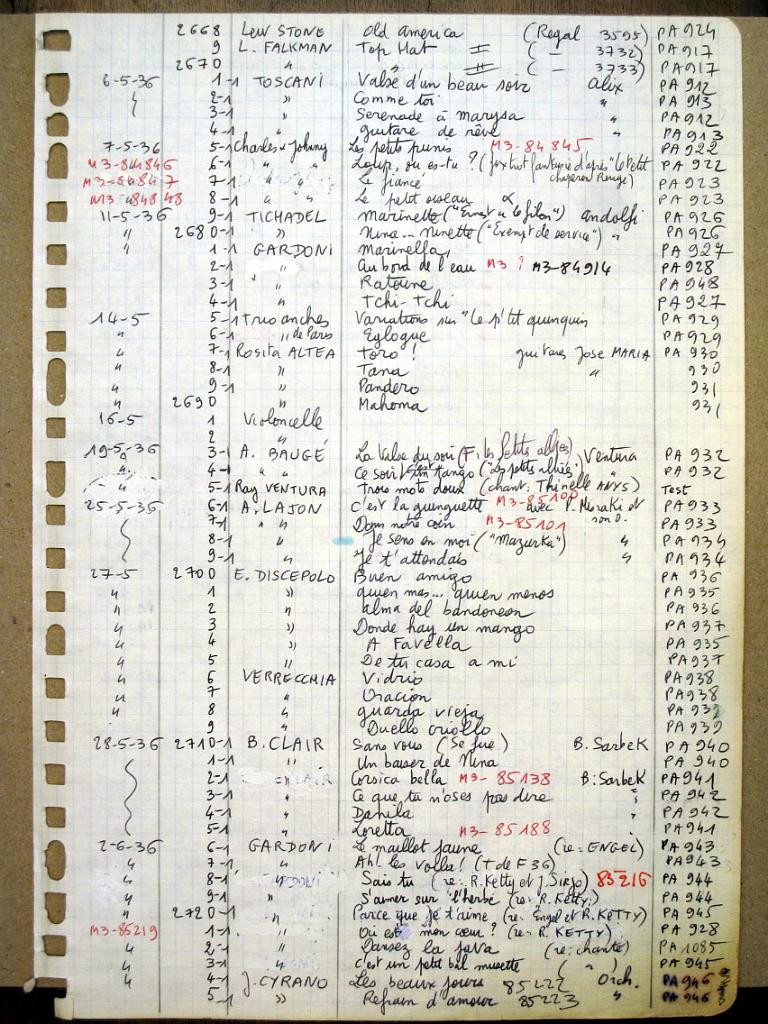 2668 Lew STONE Old america (Regal 3595) PA 924
9 L. FALKMAN Top Hat I (— 3732) PA 917
2670 " " II (— 3733) PA 917
6-5-36 1-1 TOSCANI Valse d'un beau soir Alix PA 912
2-1 " Comme toi " PA 913
3-1 " Serenade à marysa " PA 912
4-1 " guitare de rêve " PA 913
7-5-36 5-1 Charles et Johnny Les petits punis M3-84845 PA 922
M3-84846 6-1 " " Loup, où es-tu? (fox trot fantaisie d'après "le Petit chaperon Rouge) PA 922
M3-84847 7-1 " Le fiancé PA 923
M3-84848 8-1 " " Le petit oiseau PA 923
11-5-36 9-1 TICHADEL Marinette ("Ernest a le filon") andolfi PA 926
" 2680-1 " Nina... ninette ("Exempt de service") " PA 926
" 1-1 GARDONI Marinella PA 927
2-1 " Au bord de l'eau M3 ? M3-84914 PA 928
3-1 " Ratoune PA 948
4-1 " Tchi-Tchi PA 927
14-5 5-1 Trio anches Variations sur "le p'tit quinquin PA 929
" 6-1 " de Paris Eglogue PA 929
" 7-1 Rosita ALTEA Toro! guitares Jose MARIA PA 930
" 8-1 " Tana " 930
" 9-1 " Pandero 931
" 2690 " Mahoma 931
16-5 1 Violoncelle
2 "
19-5-36 3-1 A. BAUGÉ La Valse du soir (F. les petits alliés) Ventura PA 932
" 4-1 " " Ce soir c'est un tango ("Les petits alliés") " PA 932
" 5-1 Ray VENTURA Trois mots doux (chant: Thinelle ANYS) Test
25-5-36 6-1 A. LAJON C'est la guinguette M3-85100 avec P. Muraki et son O. PA 933
7-1 " " Dans notre coin M3-85101 PA 933
8-1 " Je sens en moi ("Mazurka") " PA 934
9-1 " Je t'attendais " PA 934
27-5 2700 E. DISCEPOLO Buen amigo PA 936
" 1 " quien mas... quien menos PA 935
" 2 " alma del bandoneon PA 936
" 3 " Donde hay un mango PA 937
" 4 " A Favella PA 935
" 5 " De tu casa a mi PA 937
" 6 VERRECCHIA Vidrio PA 938
" 7 " Oracion PA 938
" 8 " guarda vieja PA 939
9 " Duello criollo PA 939
28-5-36 2710-1 B. CLAIR Sans vous (Se fue) B. Sarbek PA 940
1-1 " Un baiser de Nina PA 940
2-1 Corsica bella M3-85138 B. Sarbek PA 941
3-1 " Ce que tu n'oses pas dire " PA 942
4-1 " Danila " PA 942
5-1 " Loretta M3-85188 PA 941
2-6-36 6-1 GARDONI Le maillot jaune (re: ENGEL) PA 943
" 7-1 " Ah! les voilà! (T de F 36) PA 943
" 8-1 " Sais tu (re: R. Ketty et J. Sirjo) 85216 PA 944
" 9-1 " S'aimer sur l'herbe (re: R. Ketty) PA 944
" 2720-1 " Parce que je t'aime (re: Engel et R. KETTY) PA 945
M3-85219 1-1 " Où est mon cœur? (re: R. KETTY) PA 928
" 2-1 " Dansez la java (re: chante) PA 1085
" 3-1 " C'est un petit bal musette ( " PA 945
" 4-1 J. CYRANO Les beaux jours 85222 Orch. PA 946
5 " Refrain d'amour 85223 " PA 946